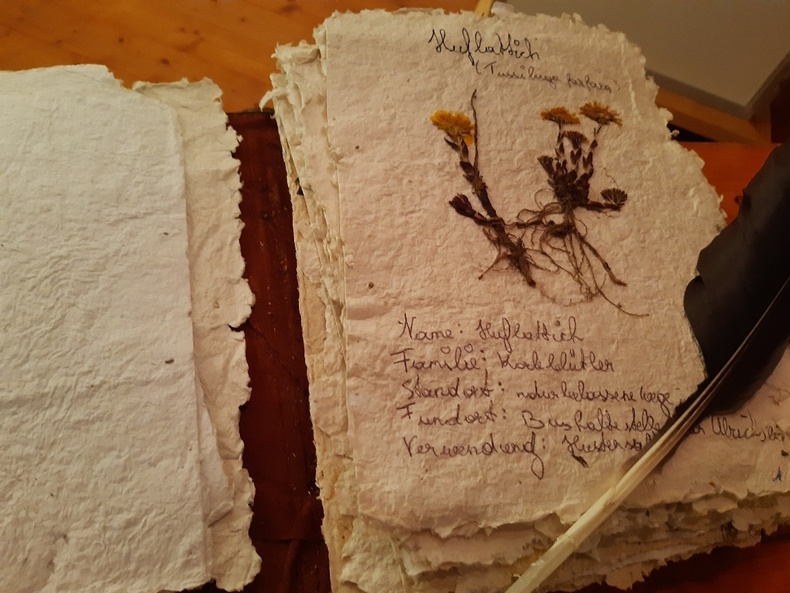 Huflattich
(Tussilago farfara)
Name: Huflattich
Familie: Korbblütler
Standort: naturbelassene Wege
Fundort: Bushaltestelle Ulrichsber
Verwendung: Hustensa